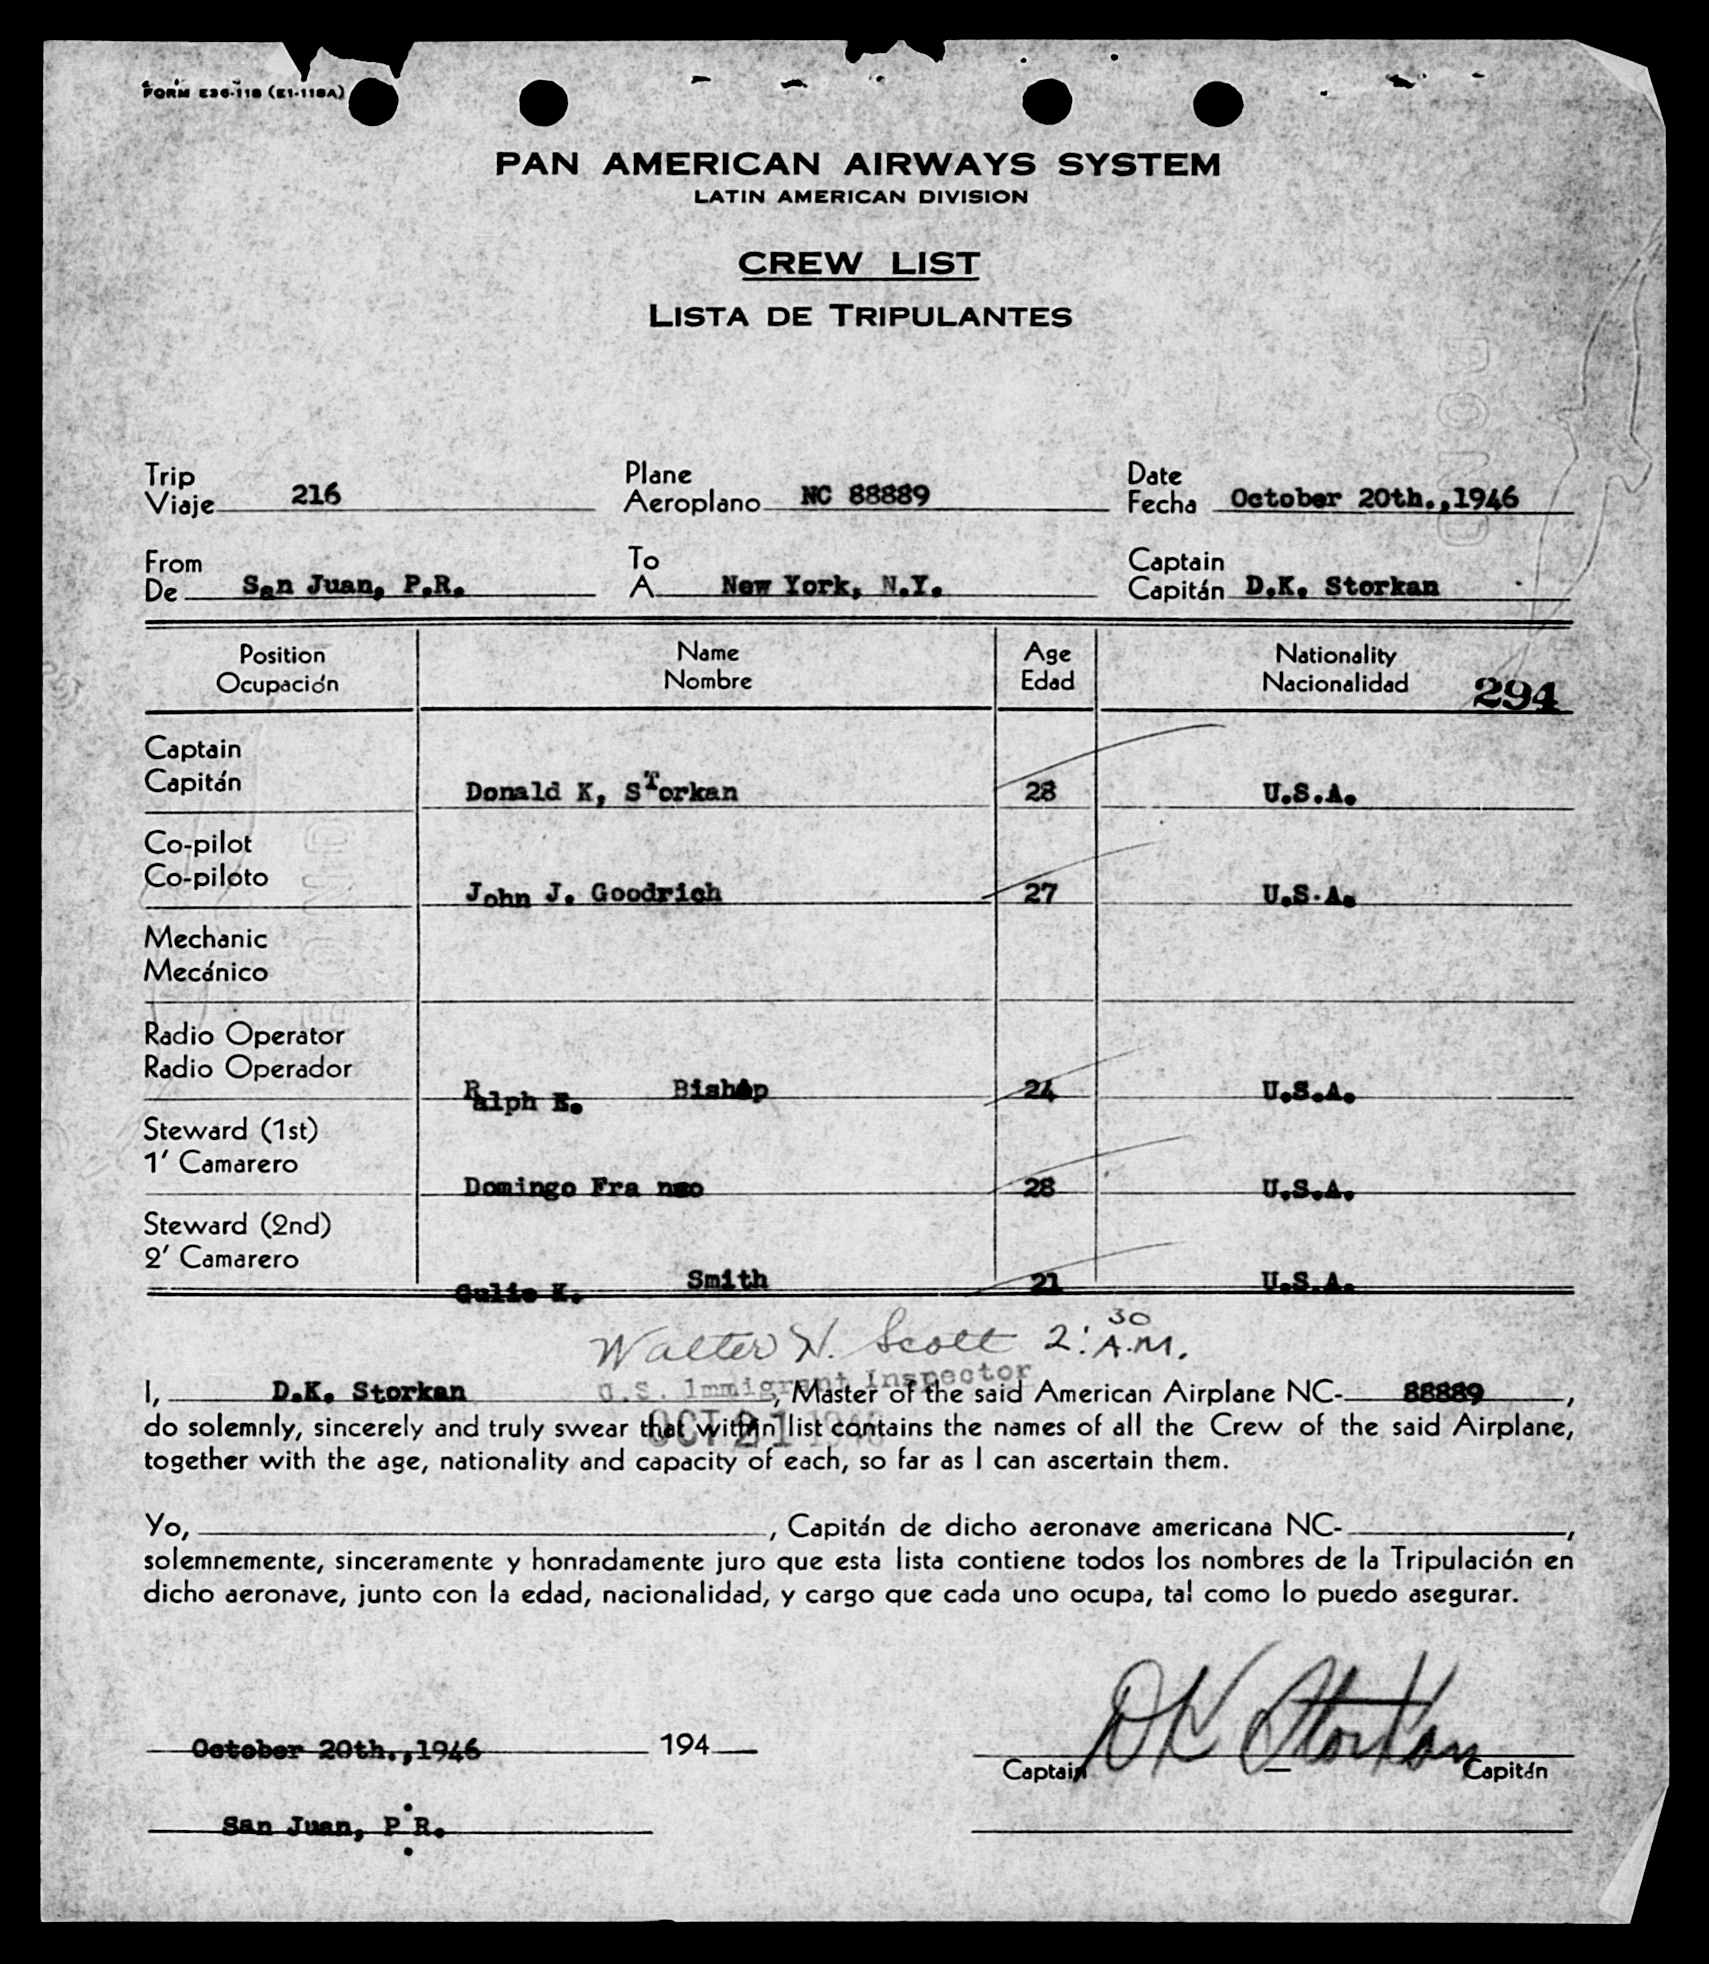 FORM E36-118 (E1-118A)
PAN AMERICAN AIRWAYS SYSTEM
LATIN AMERICAN DIVISION
CREW LIST
LISTA DE TRIPULANTES
Trip Plane Date
Viaje 216 Aeroplano NC 88889 Fecha October 20th.,1946
From To Captain
De San Juan, P.R. A New York, N.Y. Capitán D.K. Storkan
Position Name Age Nationality
Ocupación Nombre Edad Nacionalidad 294
Captain
Capitán Donald K, STorkan 28 U.S.A.
Co-pilot
Co-piloto John J. Goodrich 27 U.S.A.
Mechanic
Mecánico
Radio Operator
Radio Operador Ralph E. Bishop 24 U.S.A.
Steward (1st)
1' Camarero Domingo 28 U.S.A.
Steward (2nd)
2' Camarero K. Smith 21 U.S.A.
Walter N. Scott 2:30 A.M.
U.S. Immigrant Inspector
I, D.K. Storkan, Master of the said American Airplane NC- 88889,
OCT 21 1946
do solemnly, sincerely and truly swear that within list contains the names of all the Crew of the said Airplane,
together with the age, nationality and capacity of each, so far as I can ascertain them.
Yo, , Capitán de dicho aeronave americana NC- ,
solemnemente, sinceramente y honradamente juro que esta lista contiene todos los nombres de la Tripulación en
dicho aeronave, junto con la edad, nacionalidad, y cargo que cada uno ocupa, tal como lo puedo asegurar.
October 20th.,1946 194 DK Storkan
Captain — Capitán
San Juan, P.R.